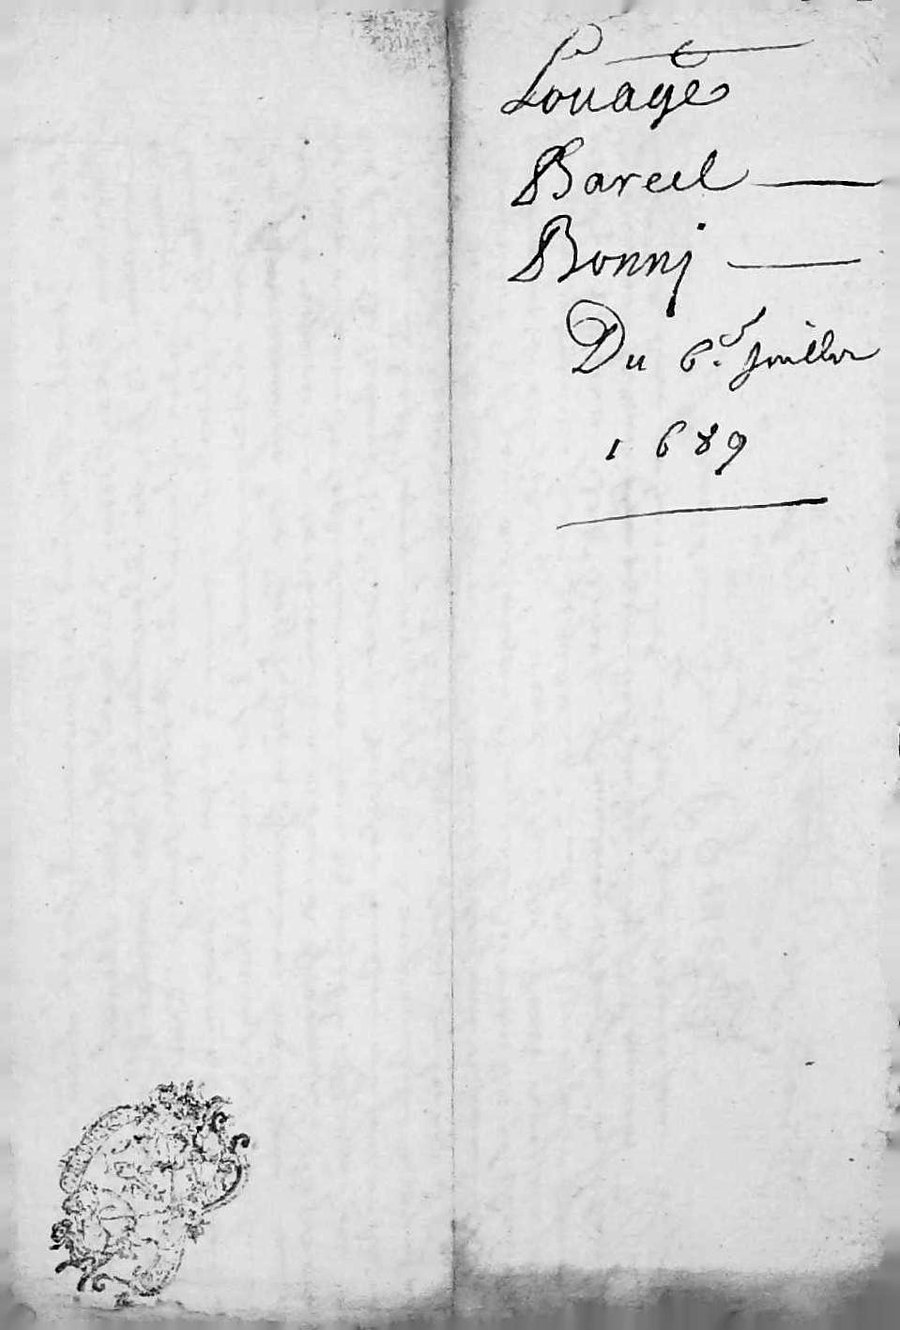 Louage
Bareel
Bonnj
Du 6.e Juillet
1689